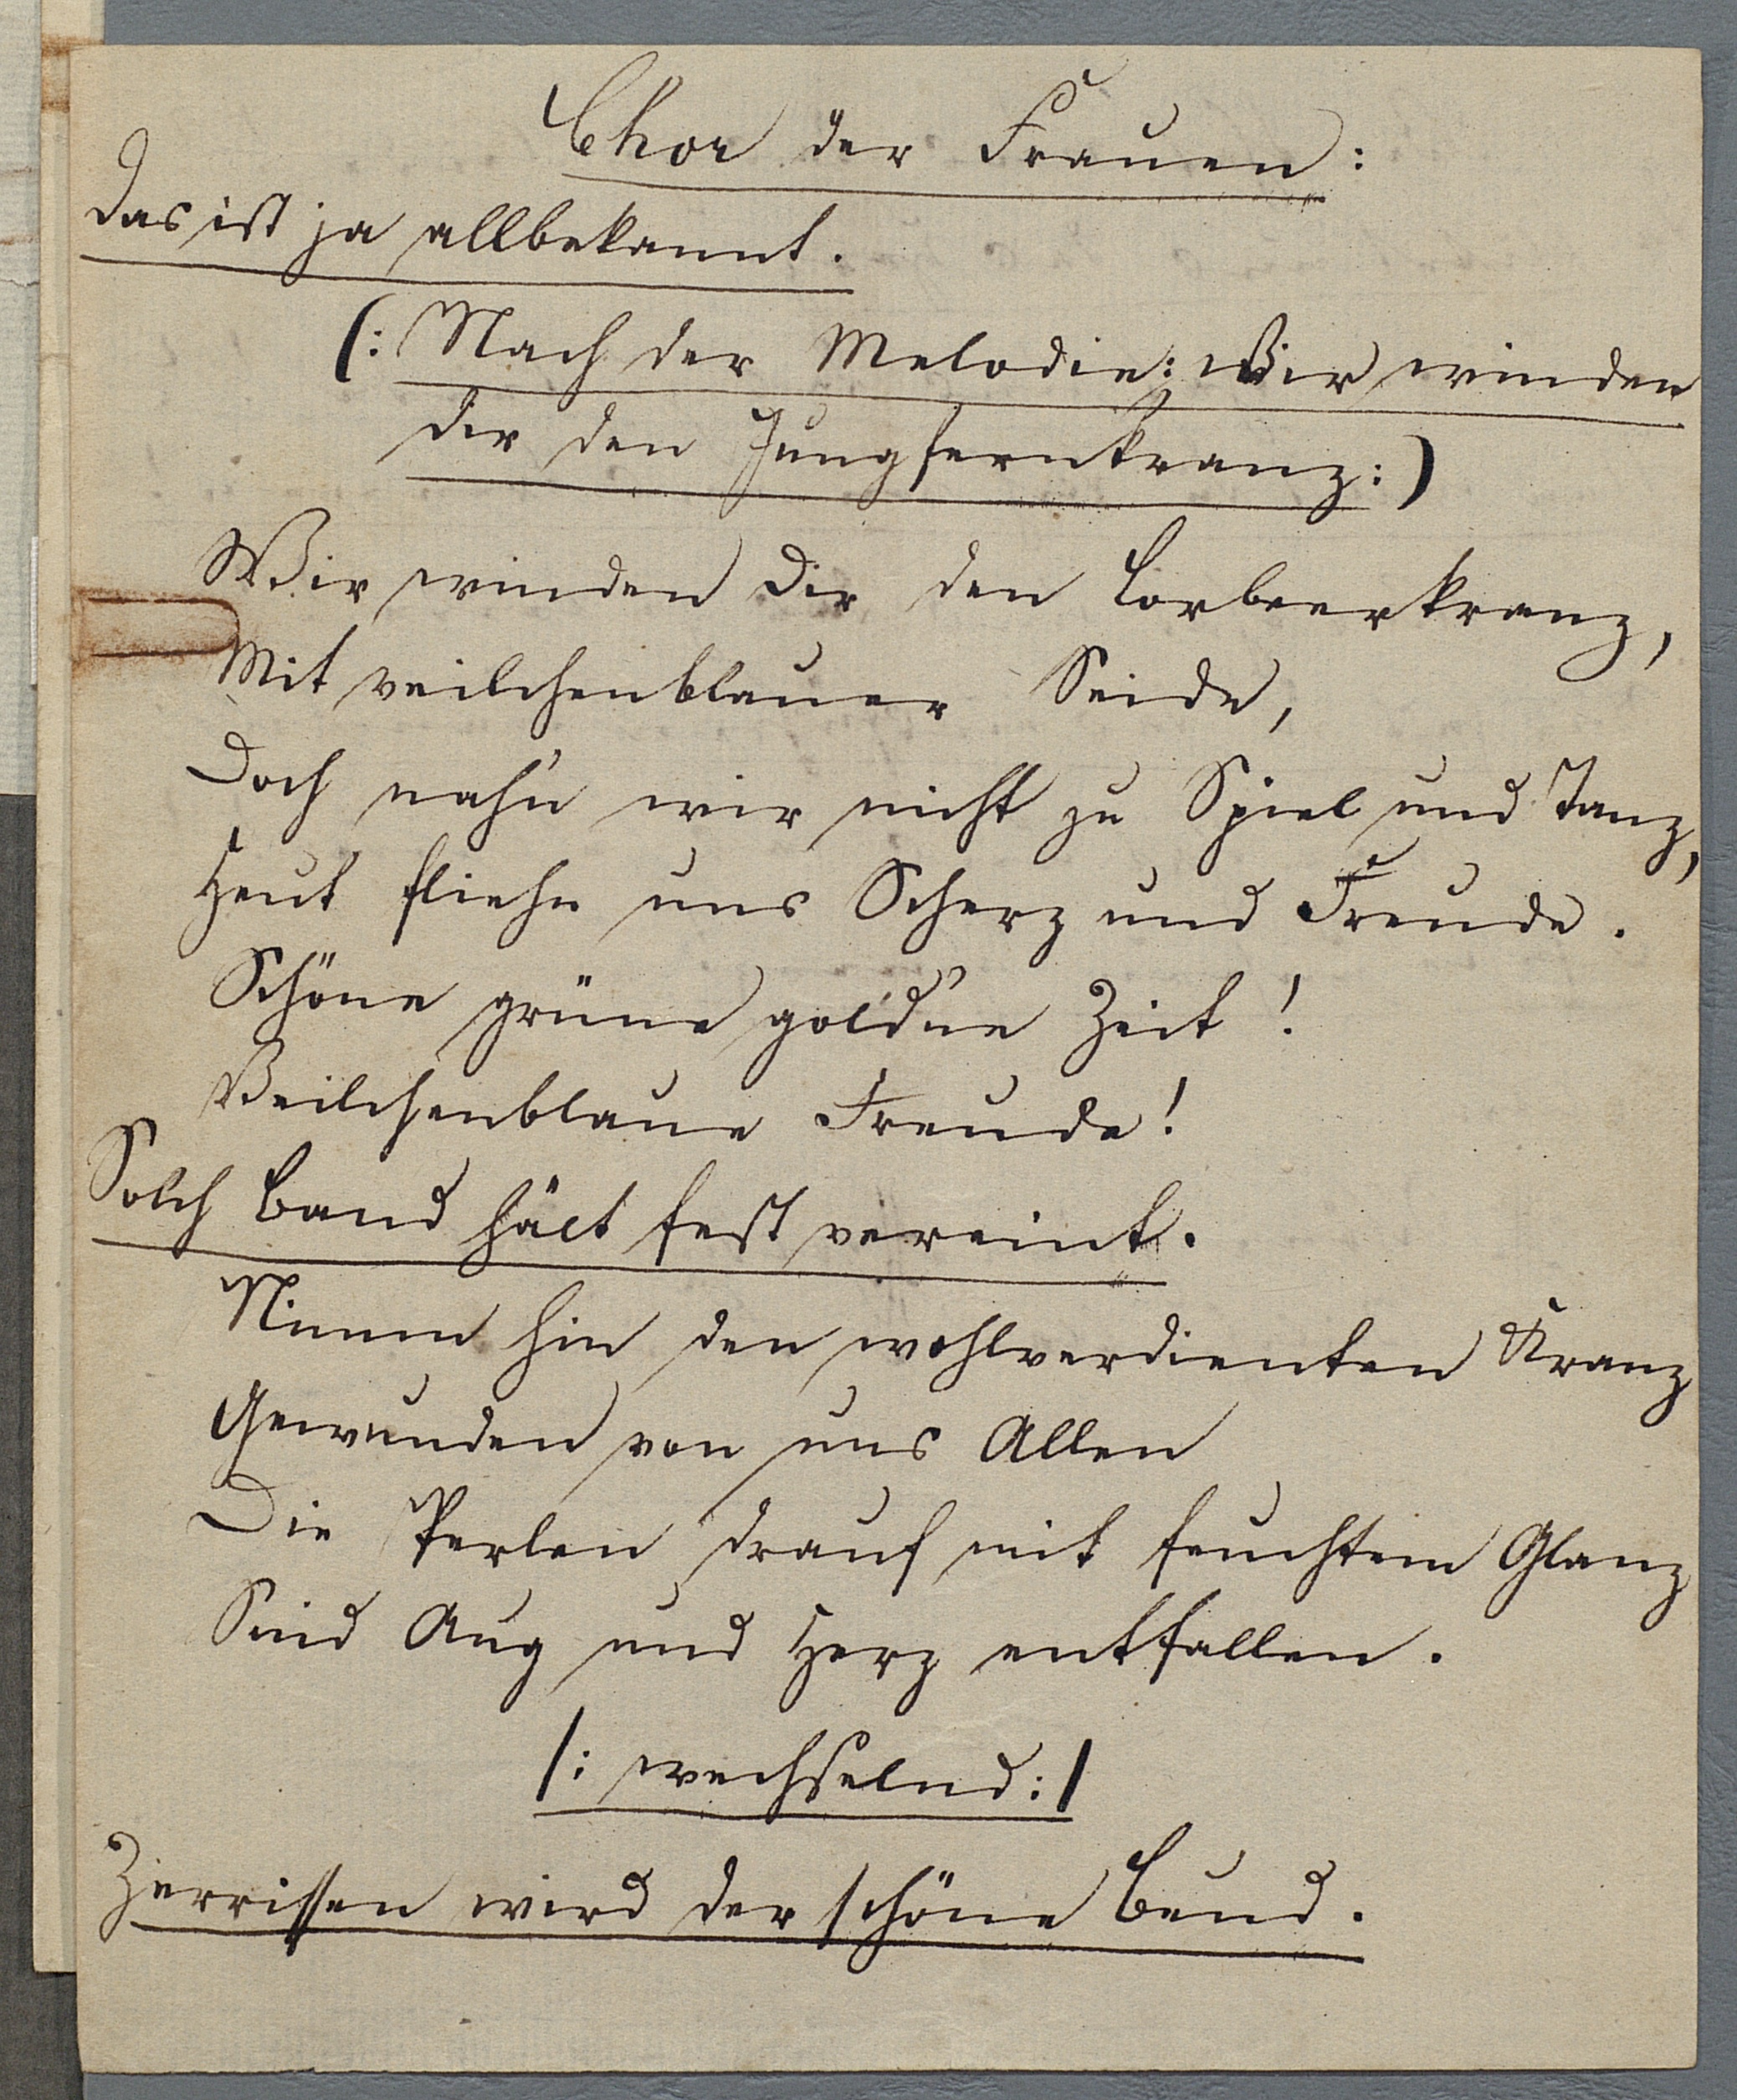 Chor der Frauen:
Das ist ja allbekannt.
(: Nach der Melodie: Wir winden
dir den Jungfernkranz:)
Wir winden Dir den Lorbeerkranz,
Mit veilchenblauer Seide,
Doch nah'n wir nicht zu Spiel und Tanz,
Heut fliehn uns Scherz und Freude.
Schöne grüne gold'ne Zeit!
Veilchenblaue Freude!
Solch Band hält fest vereint.
Nimm hin den wohlverdienten Kranz
Gewunden von uns Allen
Die Perlen drauf mit feuchtem Glanz
Sind Aug und Herz entfallen.
/: wechselnd:/
Zerrissen wird der schöne Bund.